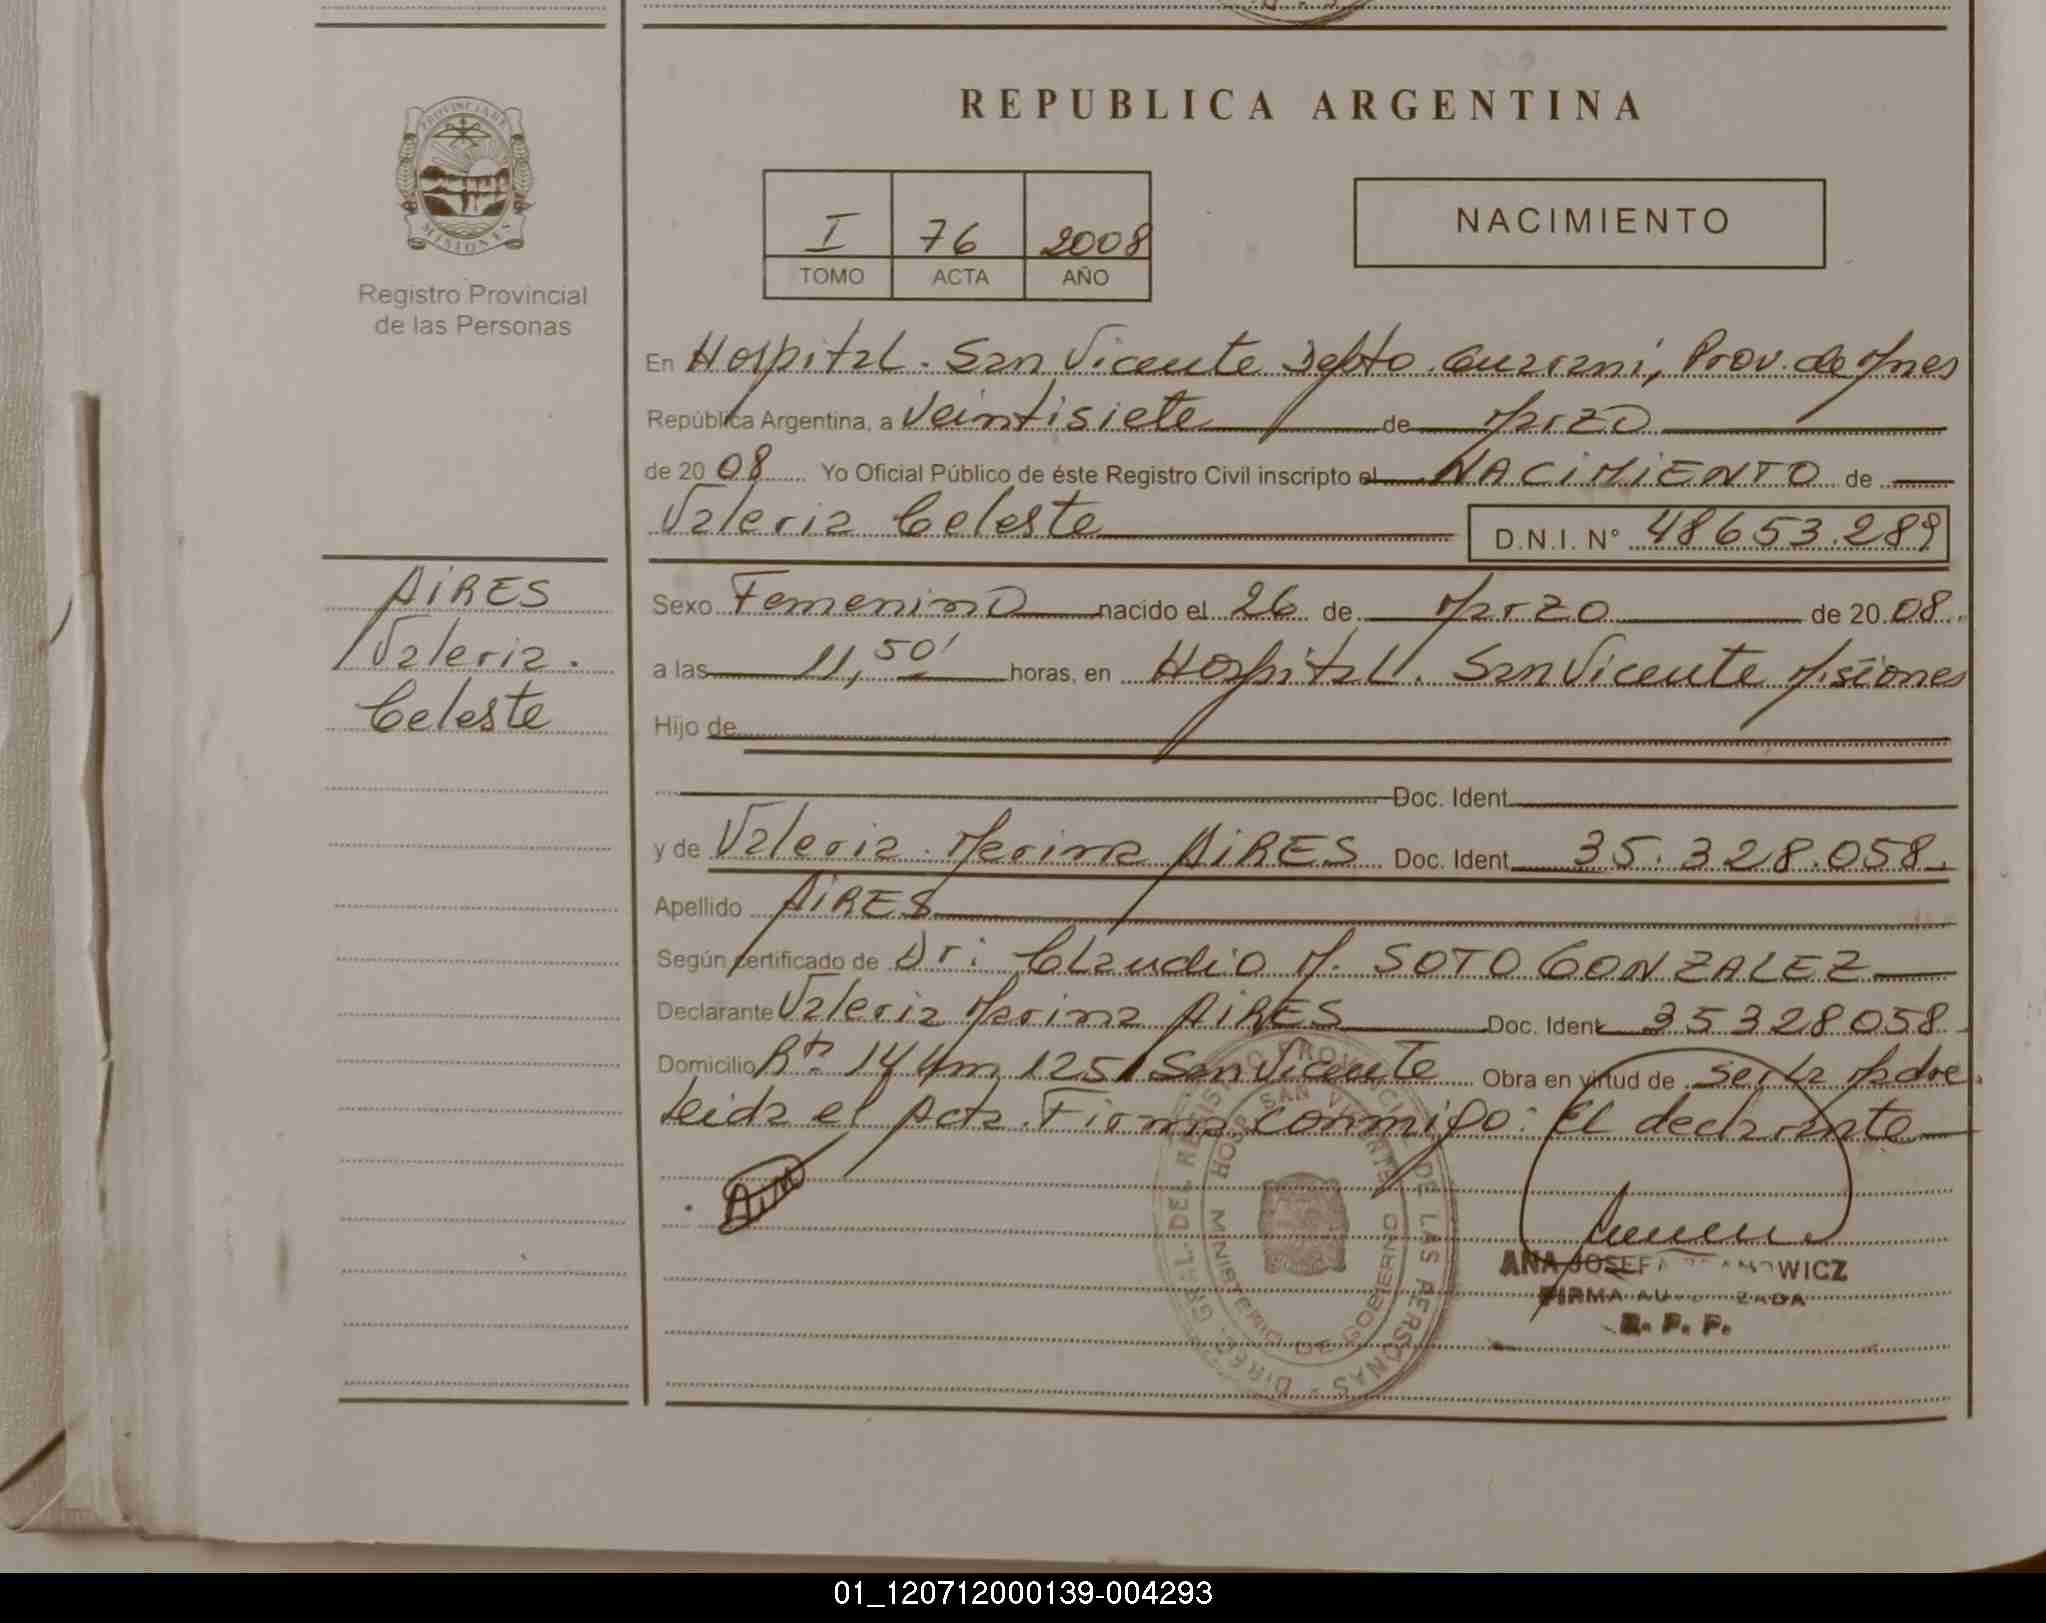 REPUBLICA ARGENTINA
PROVINCIA DE MISIONES
Registro Provincial
de las Personas
I 76 2008
TOMO ACTA AÑO
NACIMIENTO
En Hospital. San Vicente Depto. Guarani, Prov. de Mnes
República Argentina, a Veintisiete de Marzo
de 20 08 Yo Oficial Público de éste Registro Civil inscripto el NACIMIENTO de
Valeria Celeste D.N.I. N° 48653.289
AIRES
Valeria.
Celeste
Sexo Femenino nacido el 26 de Marzo de 20 08
a las 11,50' horas, en Hospital. San Vicente Misiones
Hijo de
Doc. Ident.
y de Valeria Marina AIRES Doc. Ident. 35.328.058.
Apellido AIRES
Según certificado de Dr: Claudio M. SOTO GONZALEZ
Declarante Valeria Marina AIRES Doc. Ident. 35328058
Domicilio Rta. 14 Km 1251 San Vicente Obra en virtud de ser la Madre.
Leida el Acta. Firma conmigo: El declarante
DIREC. GRAL. DEL REGISTRO PROVINCIAL DE LAS PERSONAS
HOSP. SAN VICENTE
MINISTERIO DE GOBIERNO
ANA JOSEFA
FIRMA AUTORIZADA
R. P. P.
01_120712000139-004293